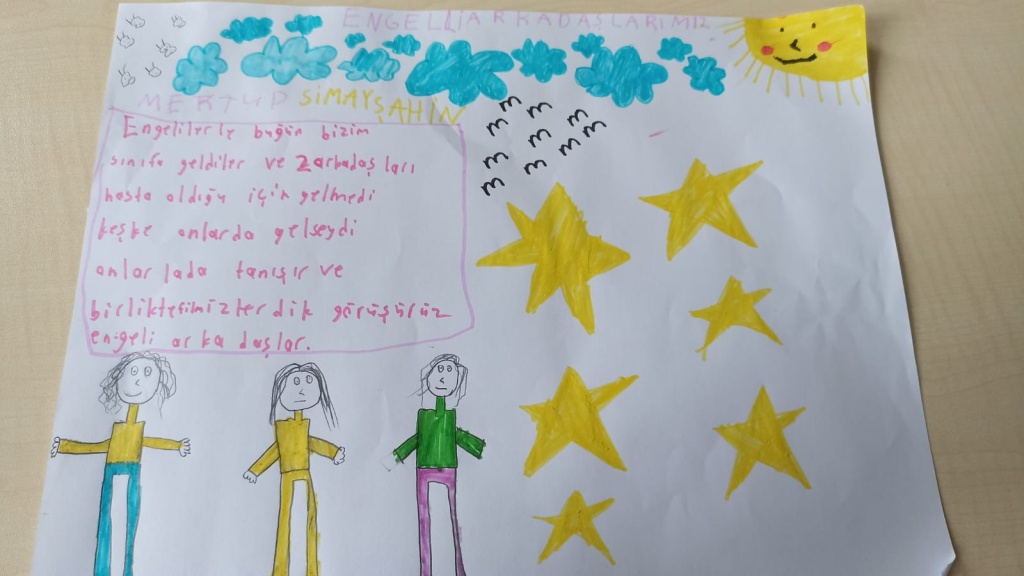 ENGELLİ ARKADAŞLARIMIZ
MEKTUP SİMAY ŞAHİN
Engelilerle bugün bizim
sınıfa geldiler ve 2 arkadaşları
hasta olduğu için gelmedi
keşke onlarda gelseydi
onlarlada tanışır ve
birliktefimizlerdik görüşürüz
engeli arkadaşlar.